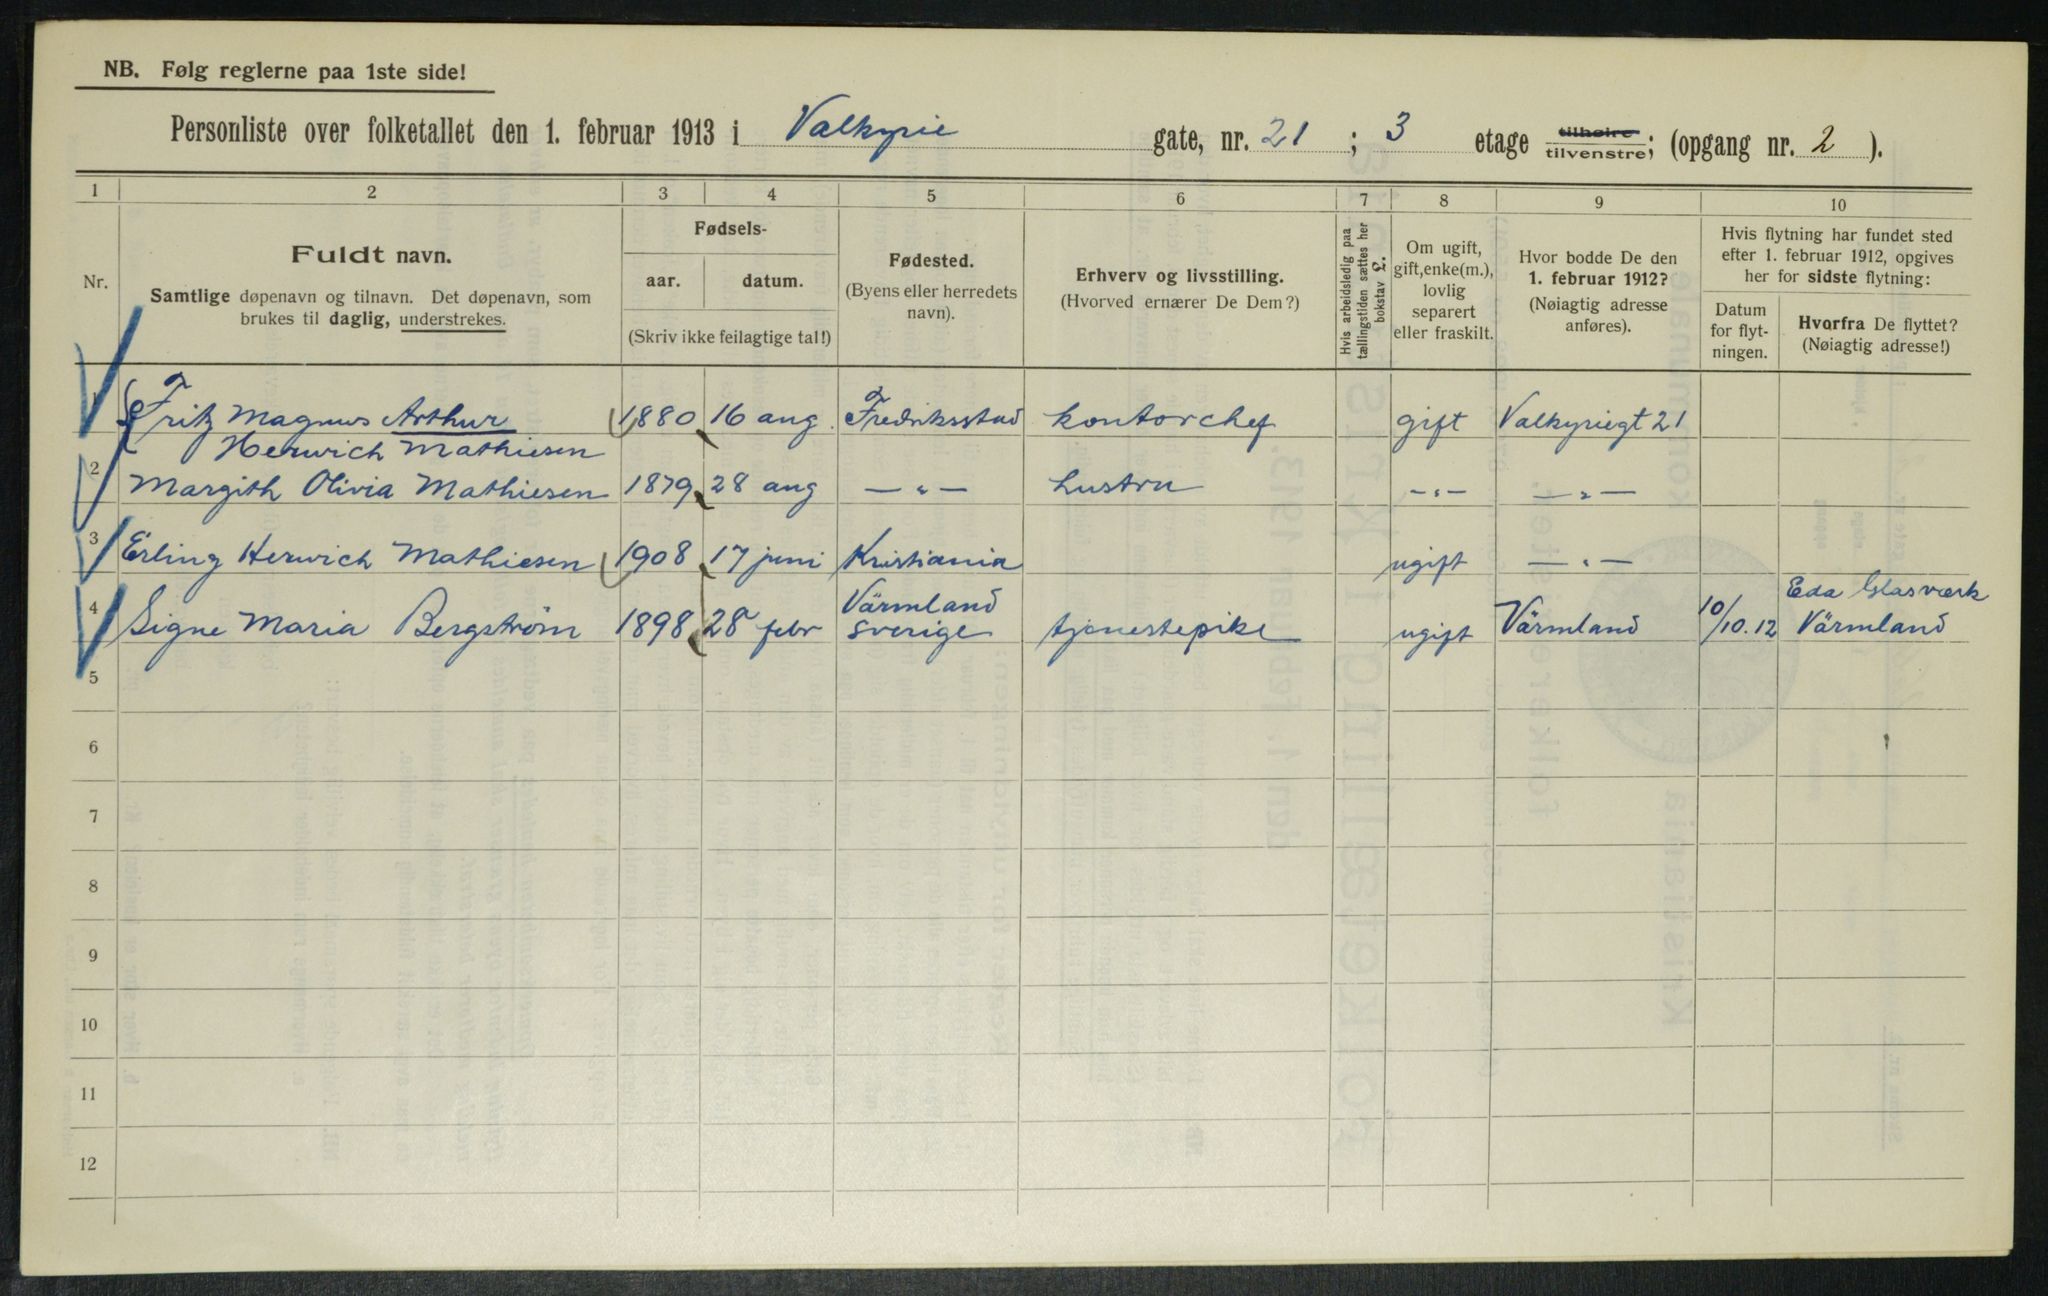 NB. Følg reglerne paa 1ste side!
Personliste over folketallet den 1. februar 1913 i Valkyrie gate, nr. 21 ; 3 etage tilhøire tilvenstre; (opgang nr. 2 ).
1 2 3 4 5 6 7 8 9 10
Nr.
Fuldt navn.
Samtlige døpenavn og tilnavn. Det døpenavn, som
brukes til daglig, understrekes.
Fødsels-
aar. datum.
(Skriv ikke feilagtige tal!)
Fødested.
(Byens eller herredets
navn).
Erhverv og livsstilling.
(Hvorved ernærer De Dem?)
Hvis arbeidsledig paa
tællingstiden sættes her
bokstav L.
Om ugift,
gift, enke(m.),
lovlig
separert
eller fraskilt.
Hvor bodde De den
1. februar 1912?
(Nøiagtig adresse
anføres).
Hvis flytning har fundet sted
efter 1. februar 1912, opgives
her for sidste flytning:
Datum
for flyt-
ningen.
Hvorfra De flyttet?
(Nøiagtig adresse!)
1 Fritz Magnus Arthur 1880 16 aug. Fredriksstad kontorchef gift Valkyriegt 21
Herwich Mathiesen
2 Margith Olivia Mathiesen 1879 28 aug — „ — hustru — „ — — „ —
3 Erling Herwich Mathiesen 1908 17 juni Kristiania ugift — „ —
Värmland Eda Glasværk
4 Signe Maria Bergström 1898 28 febr Sverige tjenestepike ugift Värmland 10/10.12 Värmland
5
6
7
8
9
10
11
12